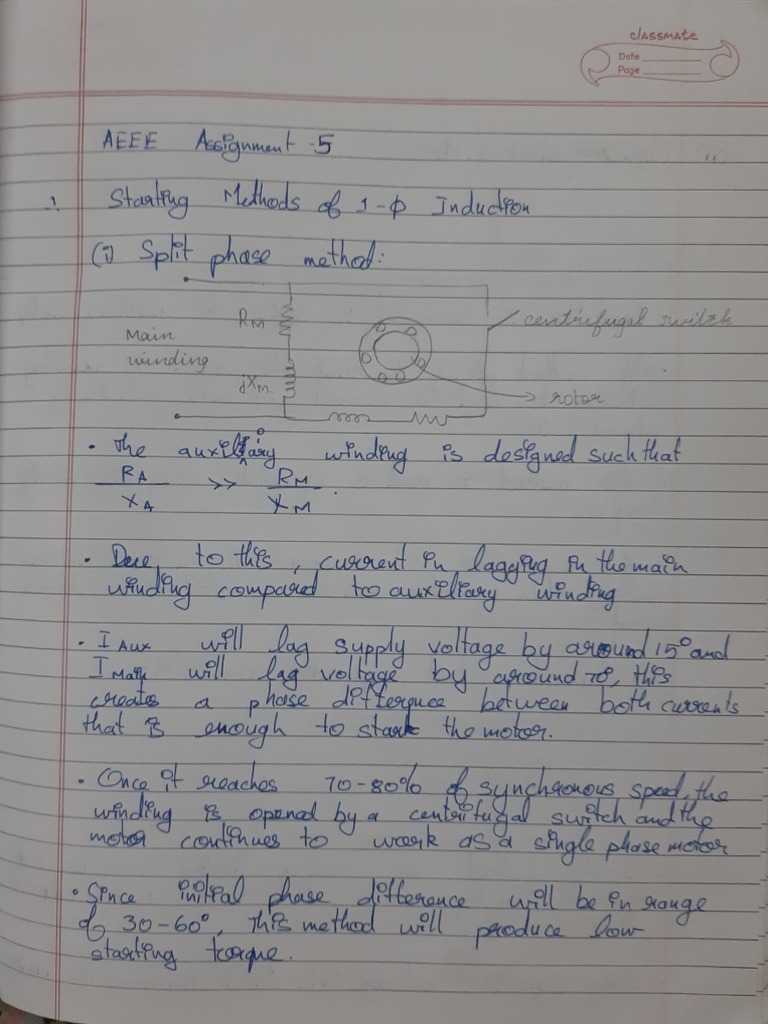 classmate
Date
Page
AEEE Assignment -5
1. Starting Methods of 1-Φ Induction
(i) Split phase method:
RM
centrifugal switch
Main
winding
jXM
rotor
• The auxiliary winding is designed such that
RA / XA >> RM / XM .
• Due to this, current in lagging in the main
winding compared to auxiliary winding
• I Aux will lag supply voltage by around 15° and
I Main will lag voltage by around 70°, this
creates a phase difference between both currents
that is enough to start the motor.
• Once it reaches 70-80% of synchronous speed, the
winding is opened by a centrifugal switch and the
motor continues to work as a single phase motor
• Since initial phase difference will be in range
of 30-60°, this method will produce low
starting torque.